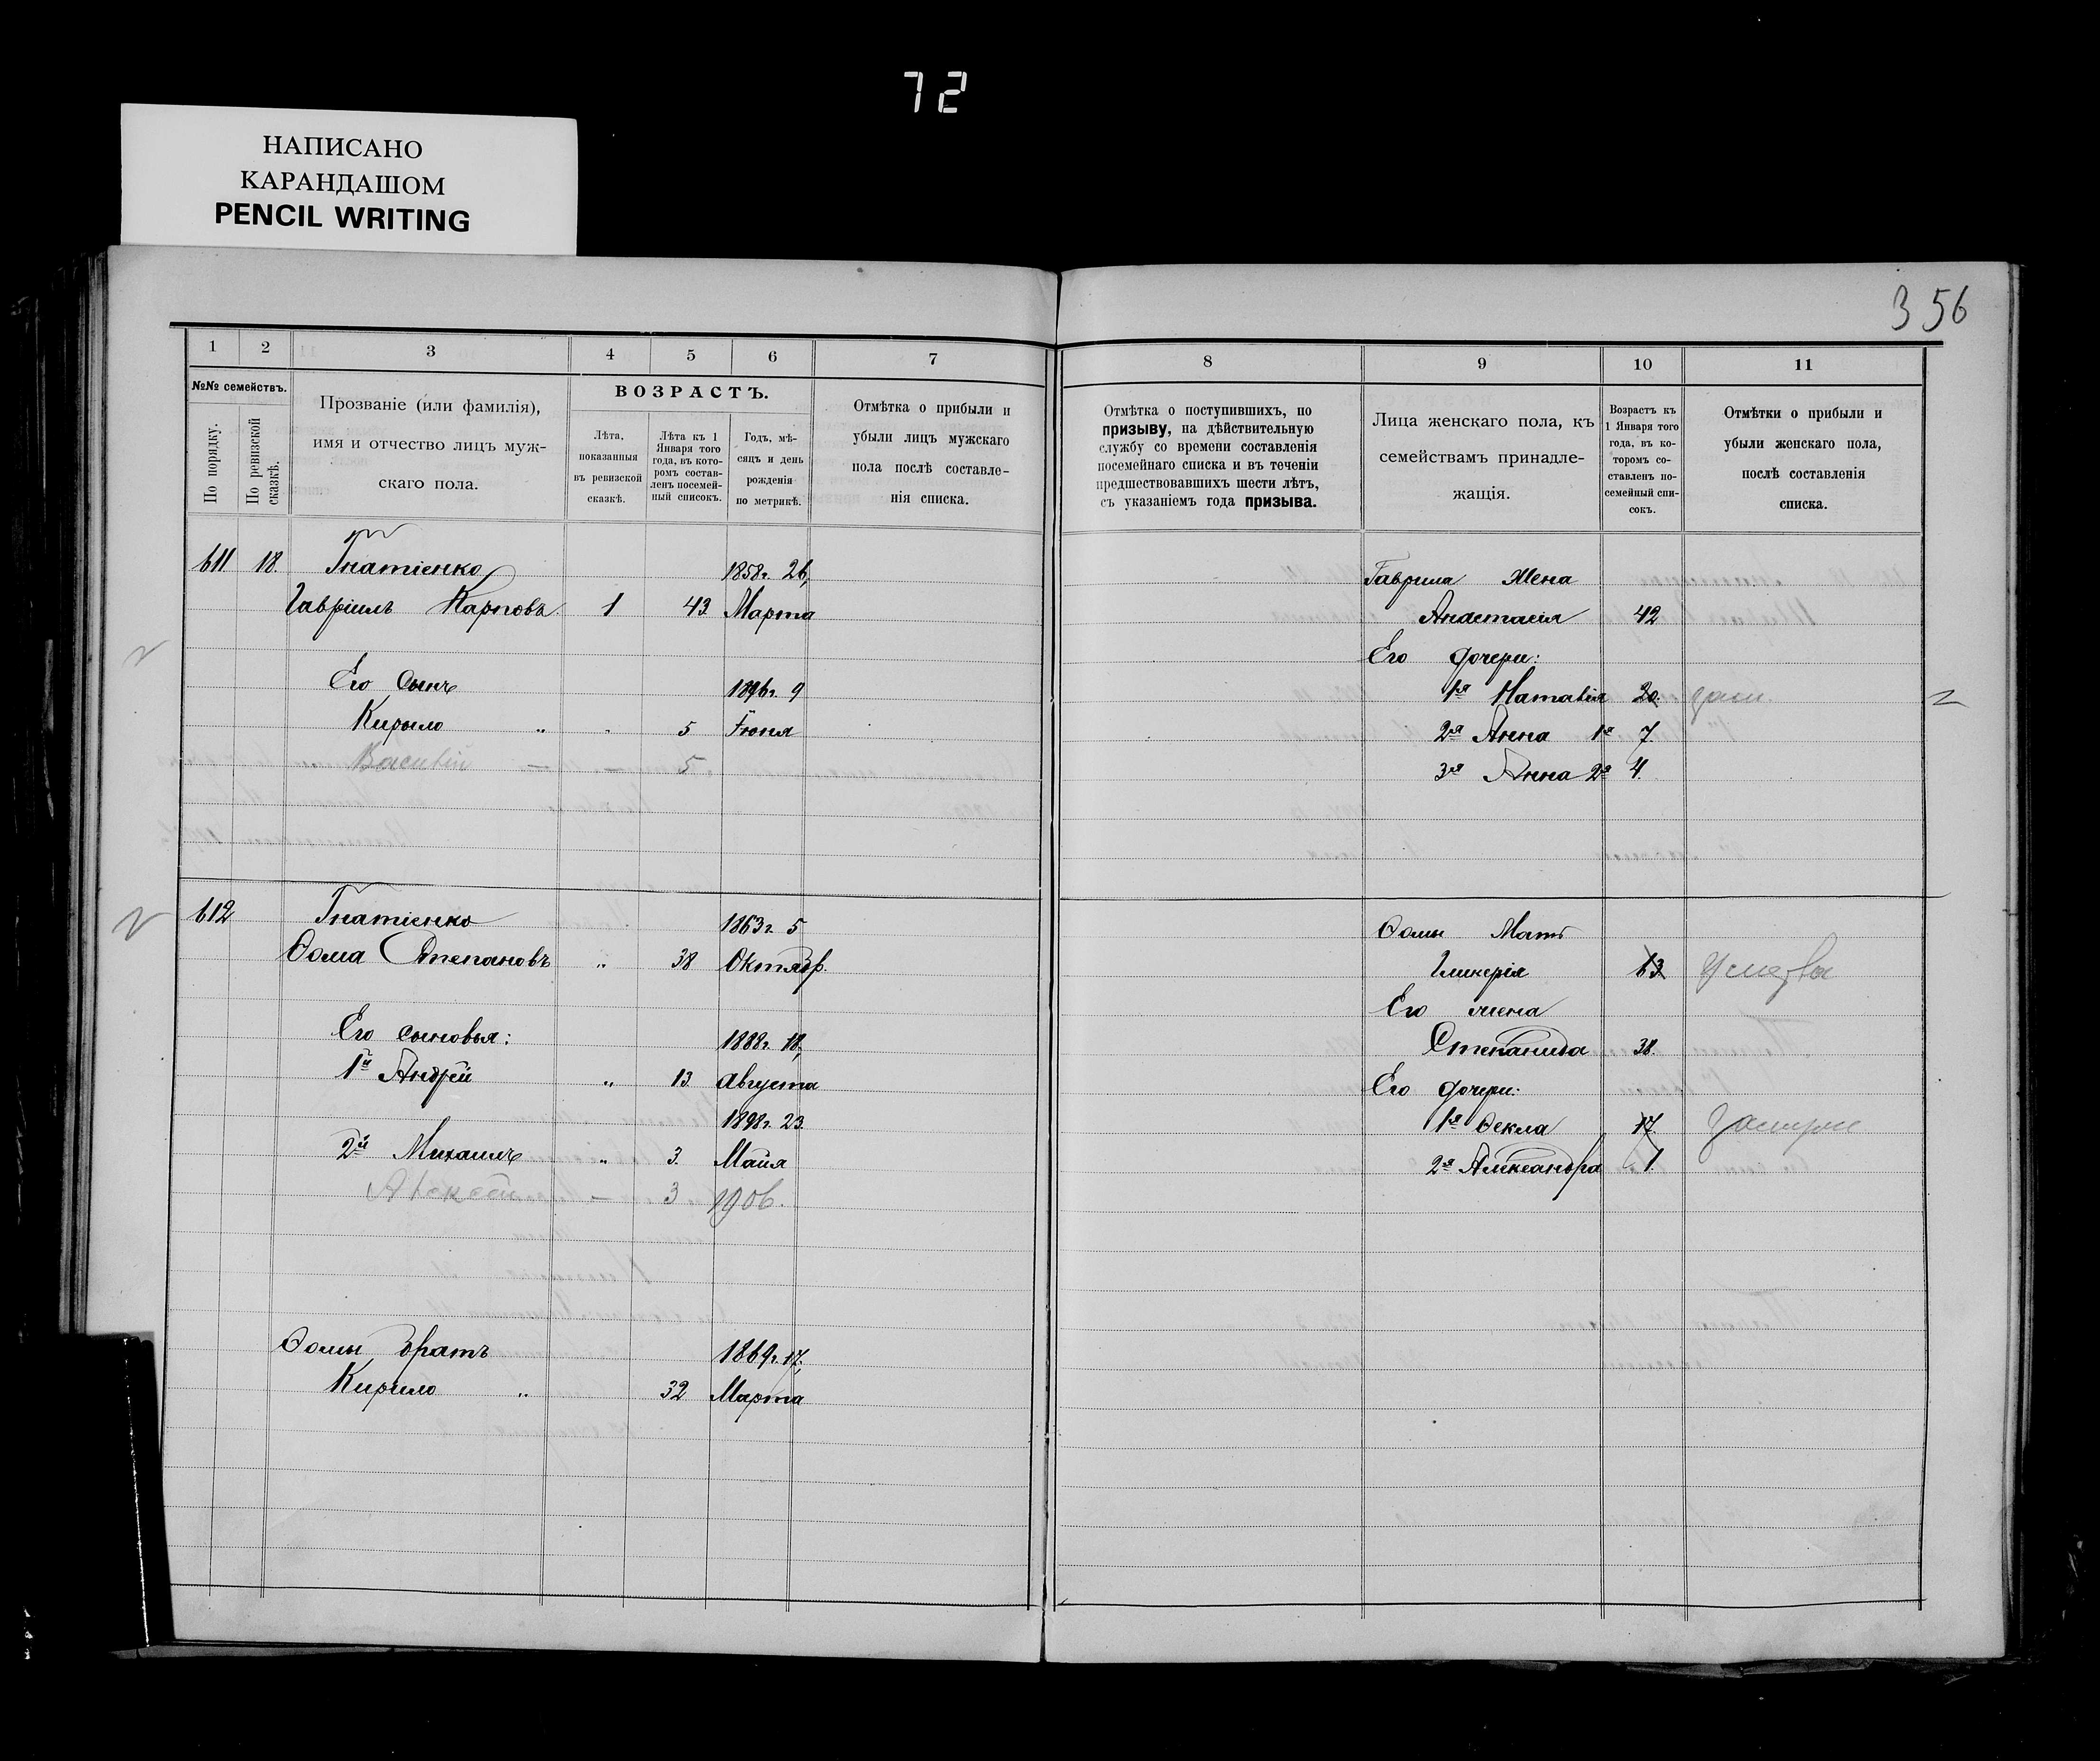 72
НАПИСАНО
КАРАНДАШОМ
PENCIL WRITING
356
1 2 3 4 5 6 7
№№ семействъ.
По порядку.
По ревизской сказкѣ.
Прозваніе (или фамилія),
имя и отчество лицъ муж-
скаго пола.
ВОЗРАСТЪ.
Лѣта,
показанныя
въ ревизской
сказкѣ.
Лѣта къ 1
Января того
года, въ кото-
ромъ состав-
ленъ посемей-
ный списокъ.
Годъ, мѣ-
сяцъ и день
рожденія
по метрикѣ.
Отмѣтка о прибыли и
убыли лицъ мужскаго
пола послѣ составле-
нія списка.
611 18. Гнатіенко 1858г. 26,
Гавріилъ Карповъ 1 43 Марта
Его сынъ 1896г. 9
Кирыло " " 5 Іюня
Василій — — 5
612 Гнатіенко 1863г. 5
Ѳома Степановъ " 38 Октябр.
Его сыновья: 1888г. 18,
1й Андрей " 13. Августа
1898г. 23.
2й Михаилъ " 3. Маія
Алексей — 3 1906.
Ѳомы братъ 1869г. 17,
Кирило " 32 Марта
8 9 10 11
Отмѣтка о поступившихъ, по
призыву, на дѣйствительную
службу со времени составленія
посемейнаго списка и въ теченіи
предшествовавшихъ шести лѣтъ,
съ указаніемъ года призыва.
Лица женскаго пола, къ
семействамъ принадле-
жащія.
Возрастъ къ
1 Января того
года, въ ко-
торомъ со-
ставленъ по-
семейный спи-
сокъ.
Отмѣтки о прибыли и
убыли женскаго пола,
послѣ составленія
списка.
Гаврила жена
Анастасія 42
Его дочери:
1я Наталія 20.
2я Анна 1я 7.
3я Анна 2я 4.
Ѳомы Мать
Гликерія 63 Умерла
Его жена
Степанида 38.
Его дочери:
1я Ѳекла 17.
2я Александра 1.